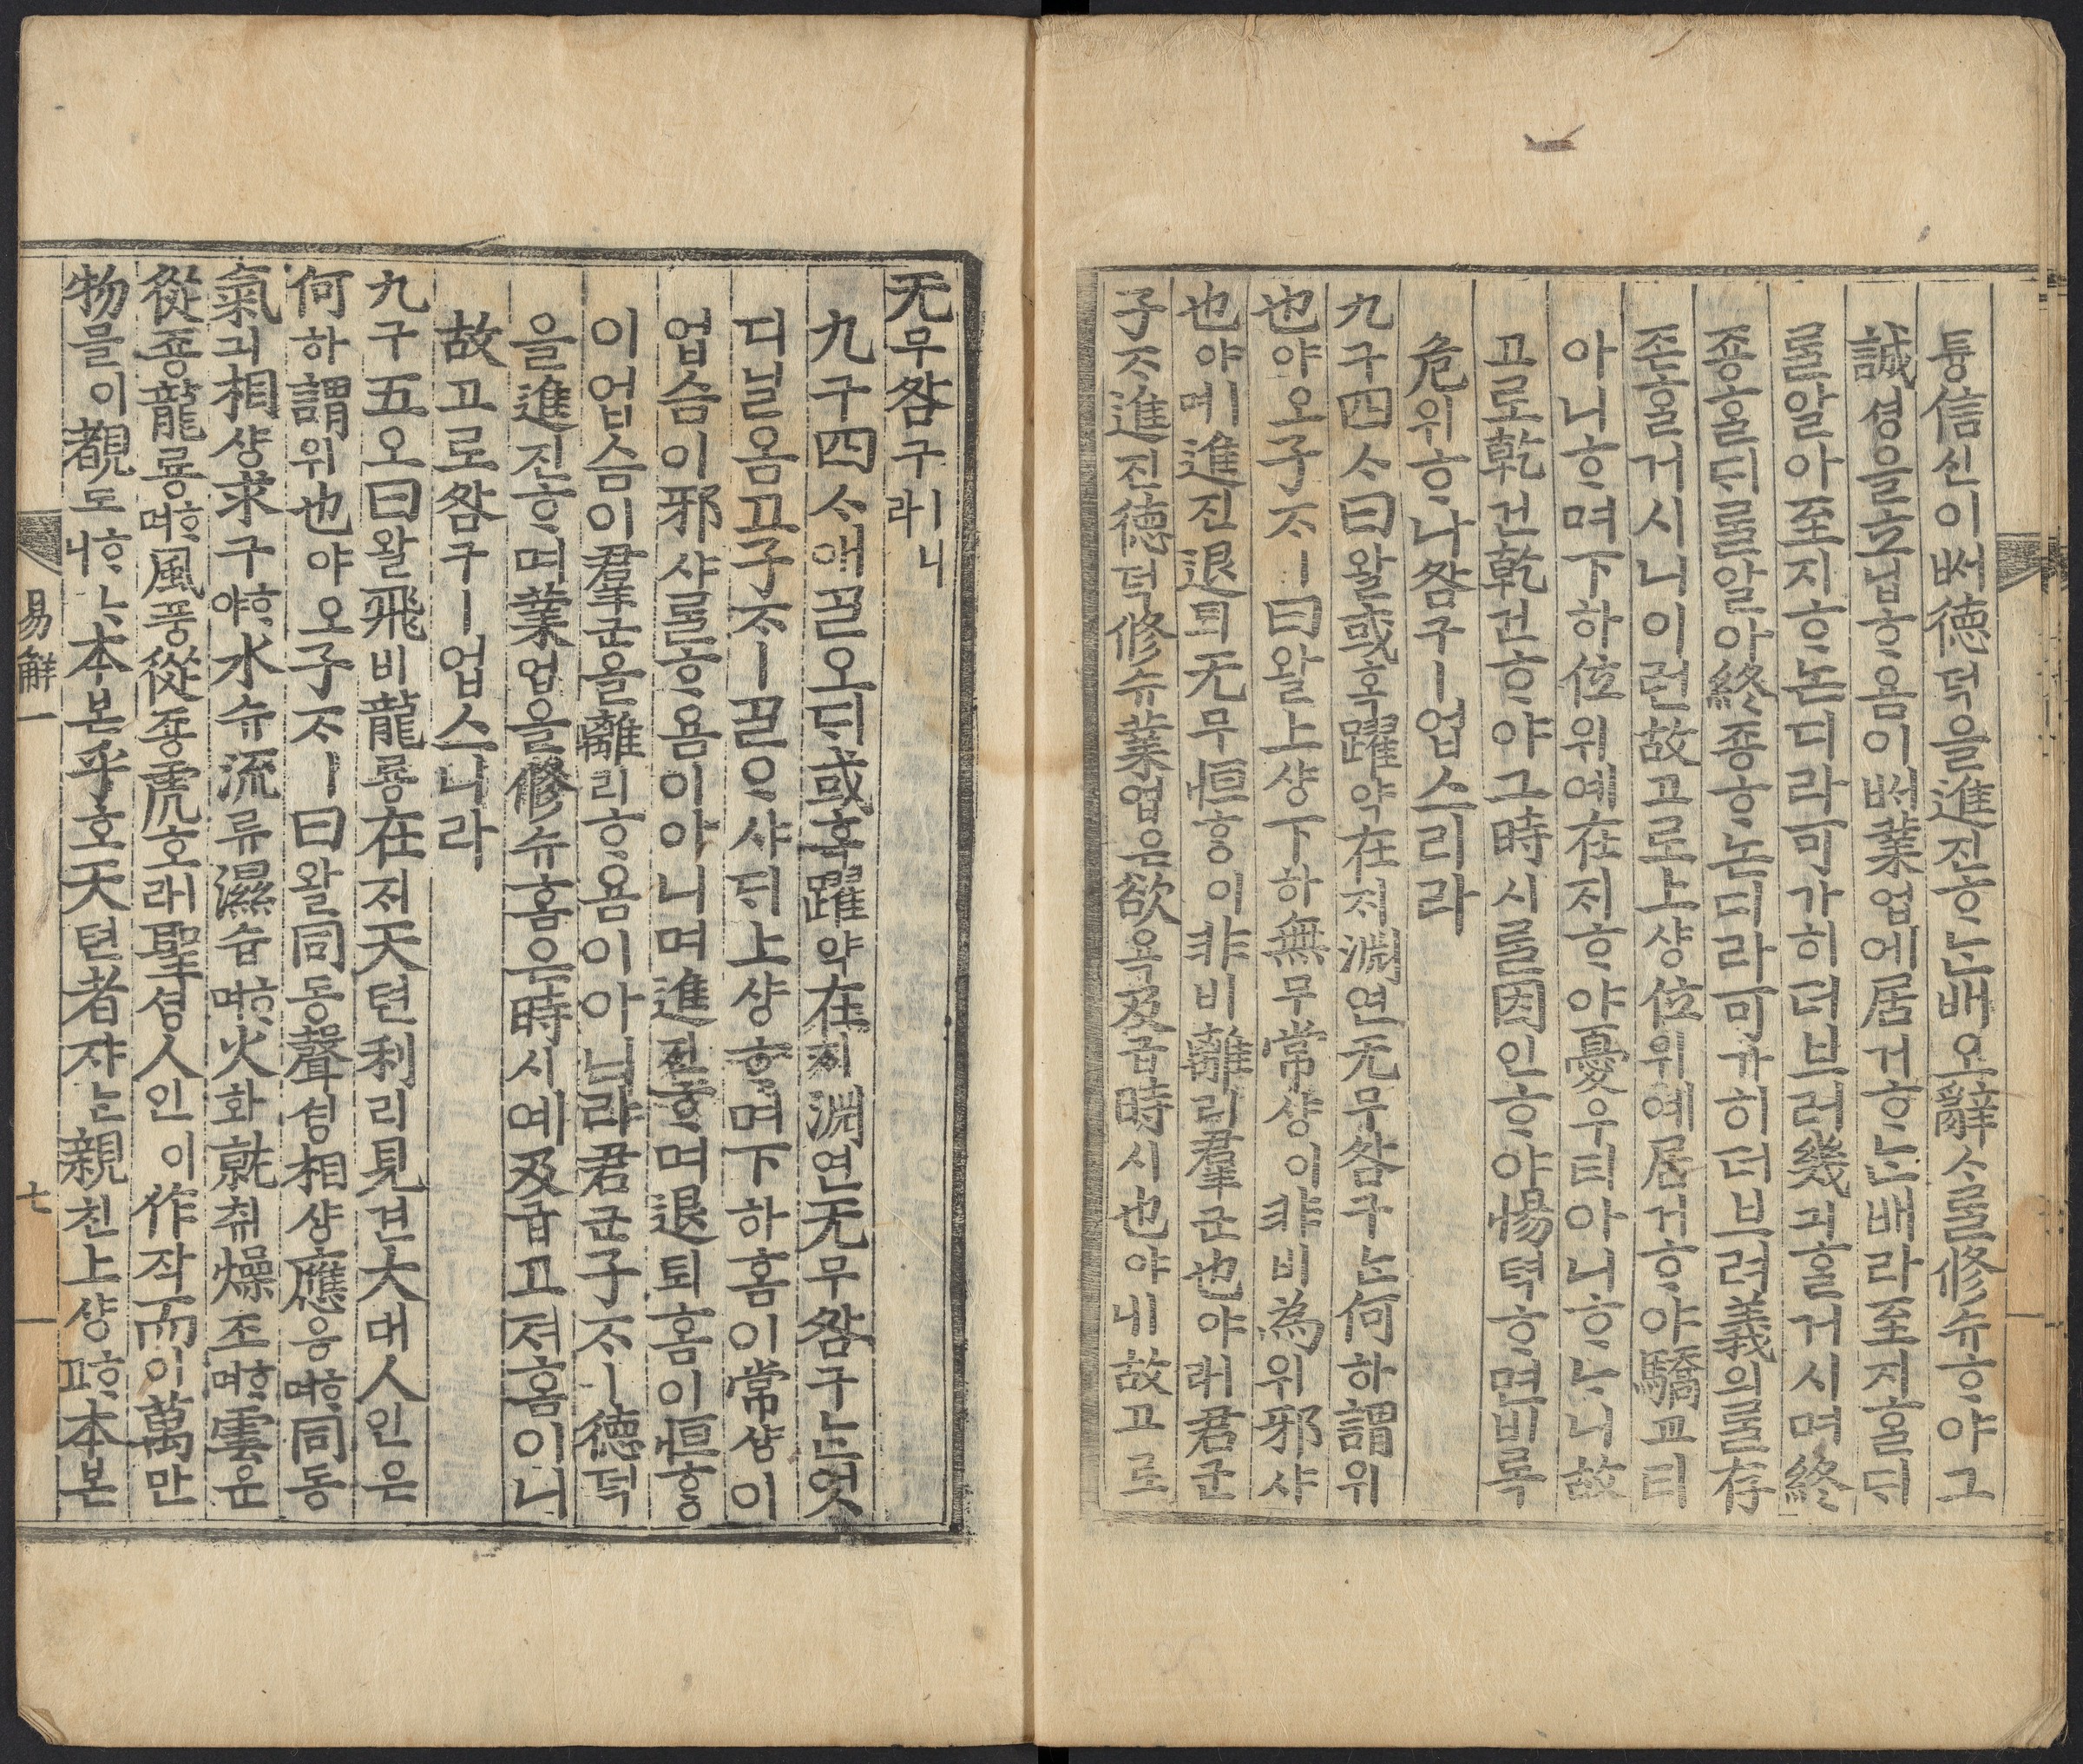 튱信신이ᄡᅥ德덕을進진ᄒᆞᄂᆞᆫ배오辭ᄉᆞᄅᆞᆯ修슈ᄒᆞ야그
誠셩을호ᄂᆞᆸᄒᆞ욤이ᄡᅥ業업에居거ᄒᆞᄂᆞᆫ배라至지ᄒᆞᆯᄃᆡ
ᄅᆞᆯ알아至지ᄒᆞ논디라可가히더브러幾긔ᄒᆞᆯ거시며終
죵ᄒᆞᆯᄃᆡᄅᆞᆯ알아終죵ᄒᆞ논디라可가히더브러義의ᄅᆞᆯ存
존ᄒᆞᆯ거시니이런故고로上샹位위예居거ᄒᆞ야驕교티
아니ᄒᆞ며下하位위예在ᄌᆡᄒᆞ야憂우티아니ᄒᆞᄂᆞ니故
고로乾건乾건ᄒᆞ야그時시ᄅᆞᆯ因인ᄒᆞ야惕텩ᄒᆞ면비록
危위ᄒᆞ나咎구ㅣ업스리라
九구四ᄉᆞ曰왈或혹躍약在ᄌᆡ淵연无무咎구ᄂᆞᆫ何하謂위
也야오子ᄌᆞㅣ曰왈上샹下하無무常샹이非비為위邪샤
也야ㅣ며進진退퇴无무恒ᄒᆞᆼ이非비離리羣군也야ㅣ라君군
子ᄌᆞ進진德덕修슈業업은欲욕及급時시也야ㅣ니故고로
无무咎구ㅣ니라
九구四ᄉᆞ애ᄀᆞᆯ오ᄃᆡ或혹躍약在ᄌᆡ淵연无무咎구ᄂᆞᆫ엇
디닐옴고子ᄌᆞㅣᄀᆞᆯᄋᆞ샤ᄃᆡ上샹ᄒᆞ며下하홈이常샹이
업슴이邪샤ᄅᆞᆯᄒᆞ욤이아니며進진ᄒᆞ며退퇴홈이恒ᄒᆞᆼ
이업슴이羣군을離리ᄒᆞ욤이아니라君군子ᄌᆞㅣ德덕
을進진ᄒᆞ며業업을修슈홈은時시예及급고져홈이니
故고로咎구ㅣ업스니라
九구五오曰왈飛비龍룡在ᄌᆡ天텬利리見견大대人인은
何하謂위也야오子ᄌᆞㅣ曰왈同동聲셩相샹應응ᄒᆞ며同동
氣긔相샹求구ᄒᆞ야水슈流류濕습ᄒᆞ며火화就ᄎᆔ燥조ᄒᆞ며雲운
從죵龍룡ᄒᆞ며風풍從죵虎호ㅣ라聖셩人인이作작而이萬만
物믈이覩도ᄒᆞᄂᆞ니本본乎호天텬者쟈ᄂᆞᆫ親친上샹ᄒᆞ고本본
易解一 七